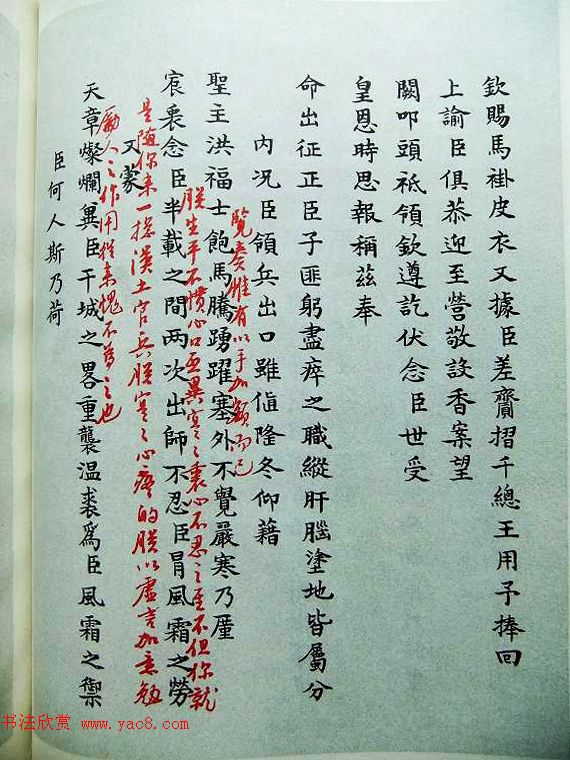 欽賜馬褂皮衣又據臣差齎摺千總王用予捧回
上諭臣俱恭迎至營敬設香案望
闕叩頭祗領欽遵訖伏念臣世受
皇恩時思報稱茲奉
命出征正臣子匪躬盡瘁之職縱肝腦塗地皆屬分
內況臣領兵出口雖值隆冬仰藉
聖主洪福士飽馬騰踴躍塞外不覺嚴寒乃厪
宸衷念臣半載之間两次出師不忍臣冒風霜之勞
又蒙
天章燦爛冀臣干城之畧重襲温裘爲臣風霜之禦
臣何人斯乃荷
覽奏惟有以手加額而已
朕生平不慣心口亟異寔寔衷心不忍之至不但你就
是隨你来一搃漢土官兵朕寔寔心疼的朕以虛言加意勉
勵人之作用從来愧不為之也
书法欣赏 www.yac8.com